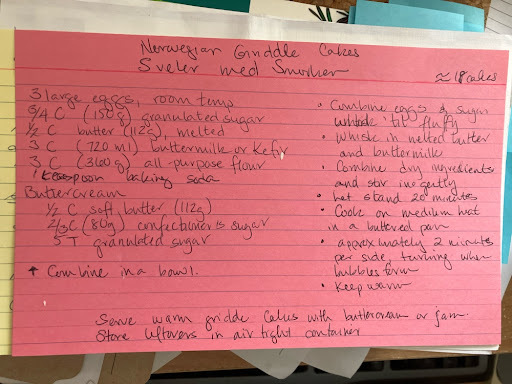 Norwegian Griddle Cakes
Sveler med Smorkrem
≈ 18 cakes
3 large eggs, room temp
3/4 C (150g) granulated sugar
1/2 C butter (112g), melted
3 C (720 ml) buttermilk or Kefir
3 C (360g) all-purpose flour
1 teaspoon baking soda
Buttercream
1/2 C soft butter (112g)
2/3 C (80g) confectioner's sugar
5 T granulated sugar
↑ Combine in a bowl.
• Combine eggs & sugar
whisk 'til fluffy
• Whisk in melted butter
and buttermilk
• Combine dry ingredients
and stir in gently
• Let stand 20 minutes
• Cook on medium heat
in a buttered pan
• approximately 2 minutes
per side, turning when
bubbles form
• Keep warm
Serve warm gridde Cakes with buttercream or jam.
Store leftovers in air tight container